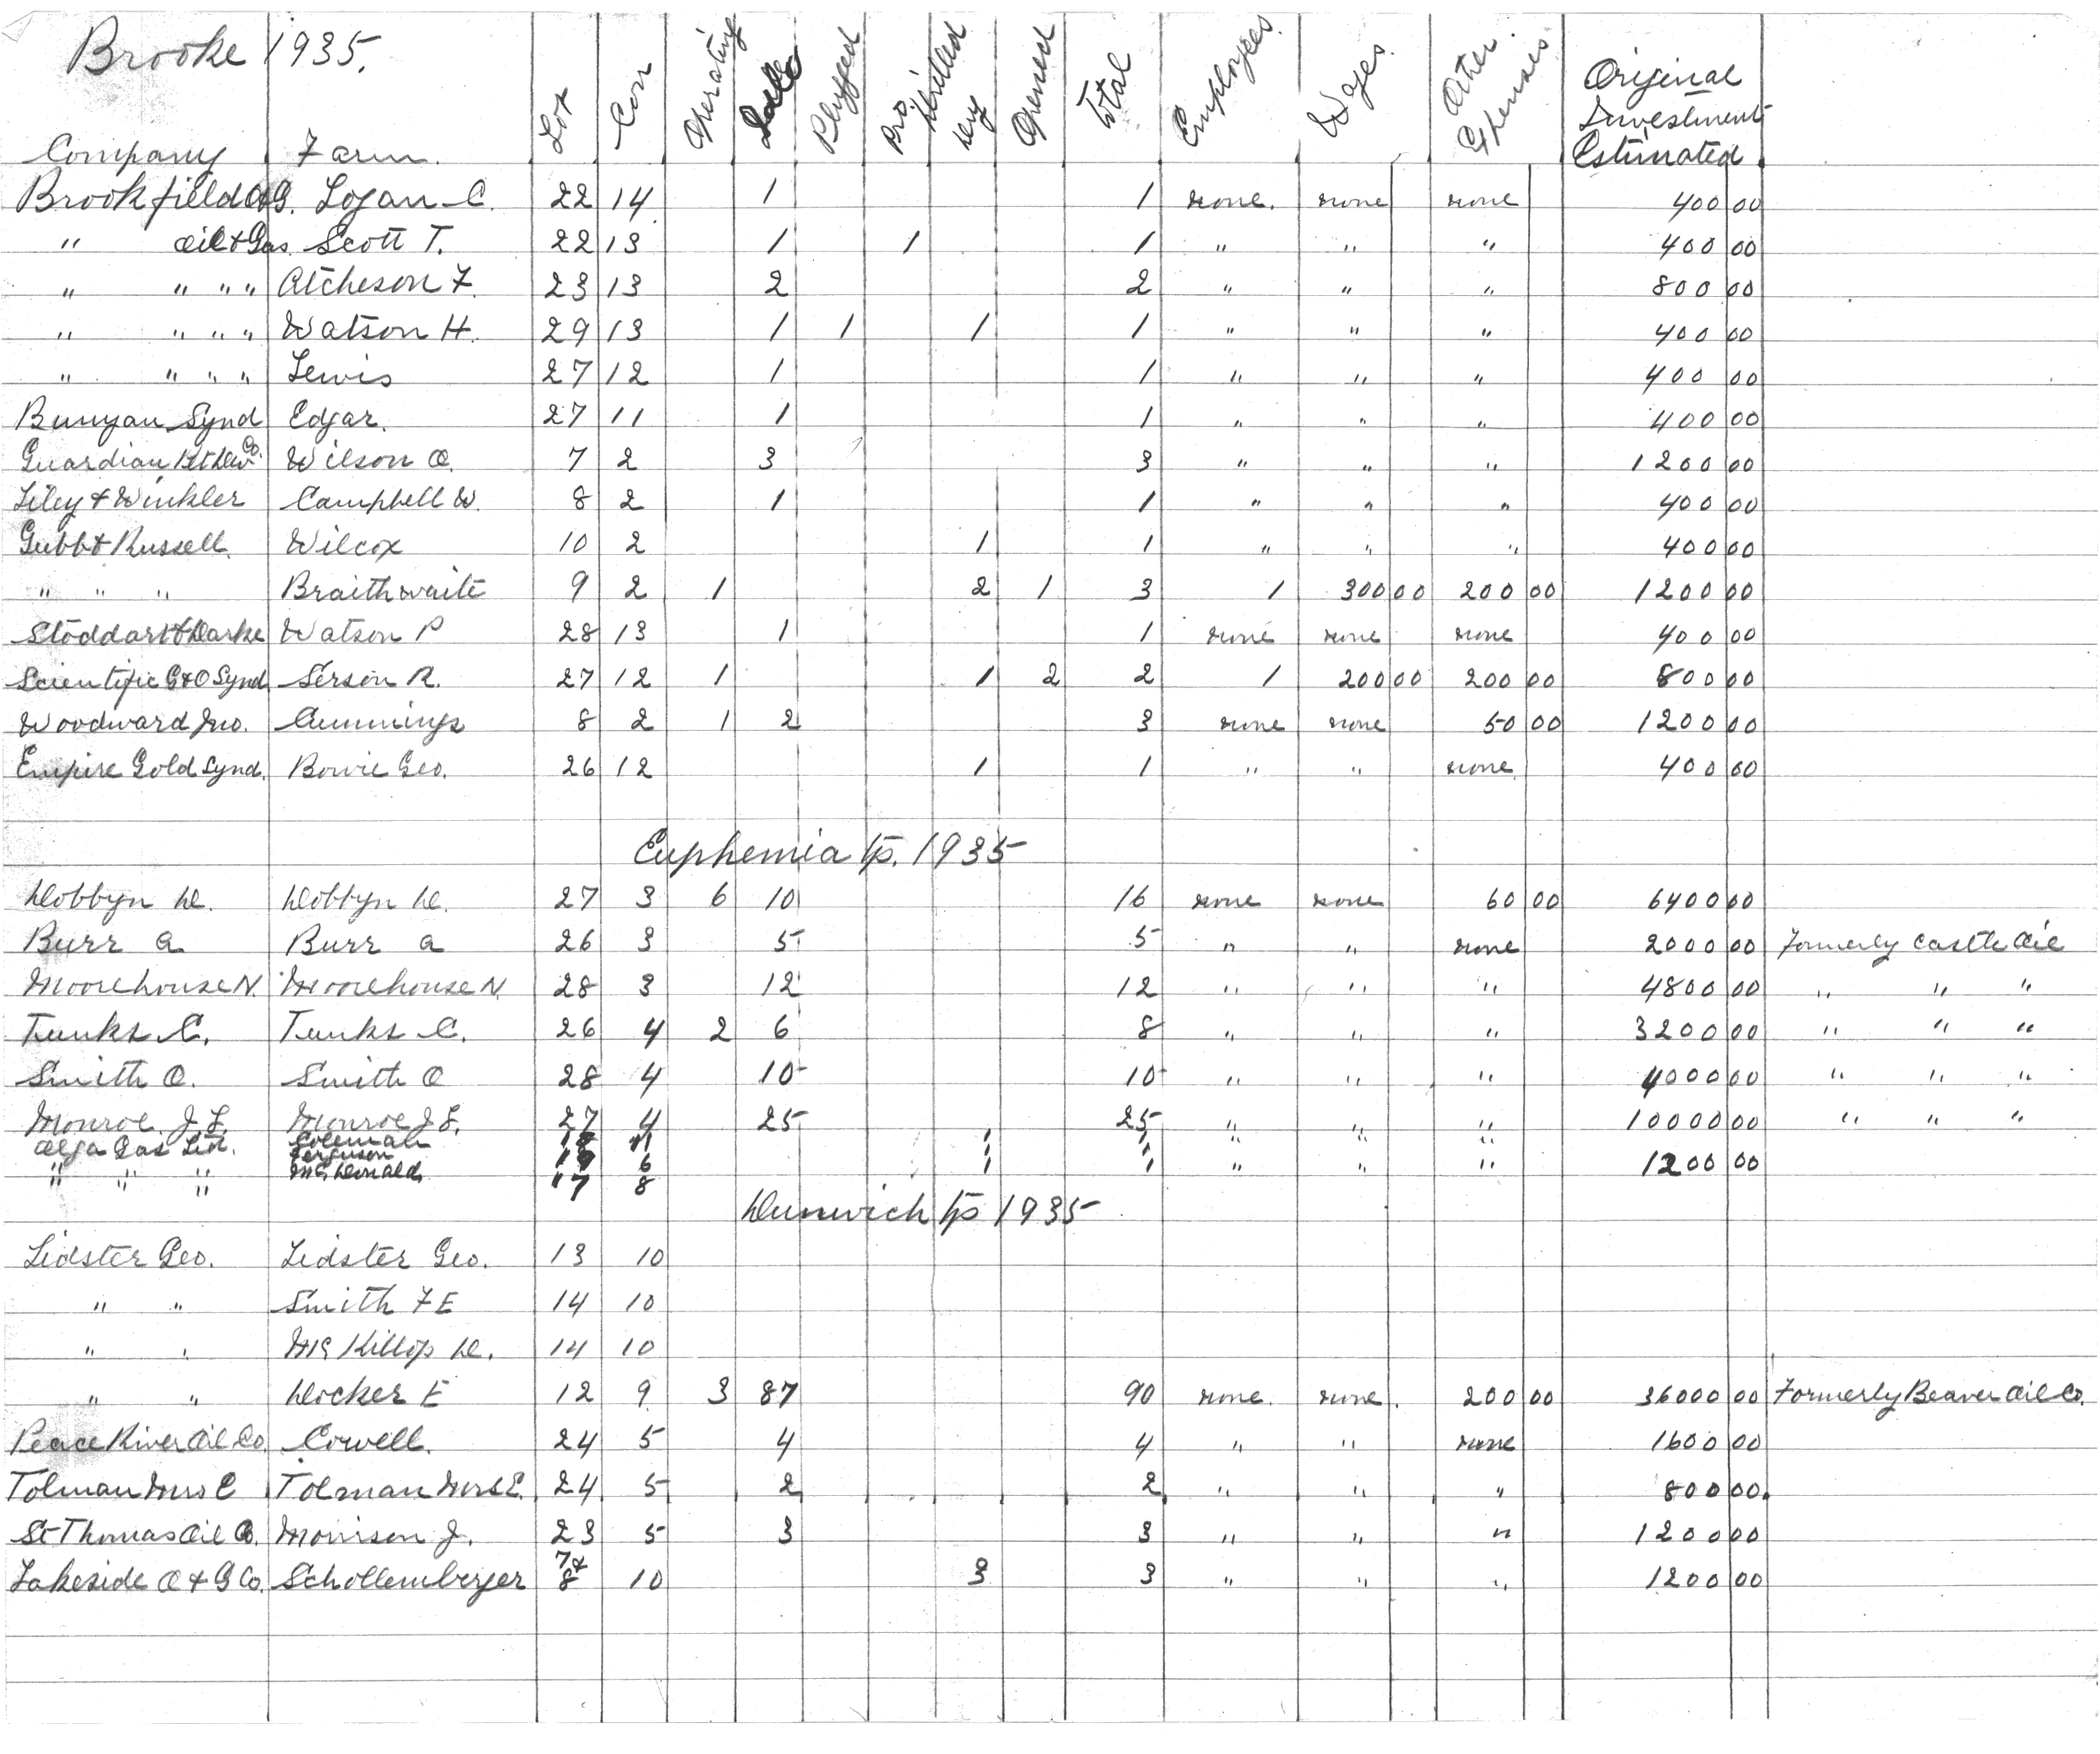 Brooke 1935.
Company Farm. Lot Con Operating Idle Plugged Pro Drilled Dry Opened Total Employees. Wages. Other Expenses. Original Investment Estimated
Brookfield O&G. Logan C. 22 14 1 1 none. none none 400 00
" Oil & Gas Scott T. 22 13 1 1 1 " " " 400 00
" " " " Atcheson F. 23 13 2 2 " " " 800 00
" " " " Watson H. 29 13 1 1 1 1 " " " 400 00
" " " " Lewis 27 12 1 1 " " " 400 00
Bunyan Synd Edgar. 27 11 1 1 " " " 400 00
Guardian Pet Dev Co. Wilson O. 7 2 3 3 " " " 1200 00
Liley & Winkler Campbell W. 8 2 1 1 " " " 400 00
Gubb & Russell. Wilcox 10 2 1 1 " " " 400 00
" " " Braithwaite 9 2 1 2 1 3 1 300 00 200 00 1200 00
Stoddart & Darke Watson P 28 13 1 1 none none none 400 00
Scientific G&O Synd. Serson R. 27 12 1 1 2 2 1 200 00 200 00 800 00
Woodward Jno. Cummings 8 2 1 2 3 none none 50 00 1200 00
Empire Gold Synd. Bowie Geo. 26 12 1 1 " " none 400 00
Euphemia tp. 1935
Dobbyn D. Dobbyn D. 27 3 6 10 16 none none 60 00 6400 00
Burr A Burr A 26 3 5 5 " " none 2000 00 Formerly Castle Oil
Moorehouse N. Moorehouse N. 28 3 12 12 " " " 4800 00 " " "
Tunks C. Tunks C. 26 4 2 6 8 " " " 3200 00 " " "
Smith O. Smith O 28 4 10 10 " " " 4000 00 " " "
Monroe J. F. Monroe J F. 27 4 25 25 " " " 10000 00 " " "
Alga Gas Ltd. Coleman 18 11 1 1 " " "
Ferguson 19 6 1 1
" " " McDonald 17 8 1 1 " " " 1200 00
Dunwich tp 1935
Lidster Geo. Lidster Geo. 13 10
" " Smith F E 14 10
" " McKillop D. 14 10
" " Docker E 12 9 3 87 90 none. none. 200 00 36000 00 Formerly Beaver Oil Co.
Peace River Oil Co. Cowell. 24 5 4 4 " " none 1600 00
Tolman Mrs E Tolman Mrs E. 24 5 2 2 " " " 800 00.
St Thomas Oil Co. Morrison J. 23 5 3 3 " " " 1200 00
Lakeside O & G Co. Schollemberger 7 & 8 10 3 3 " " " 1200 00